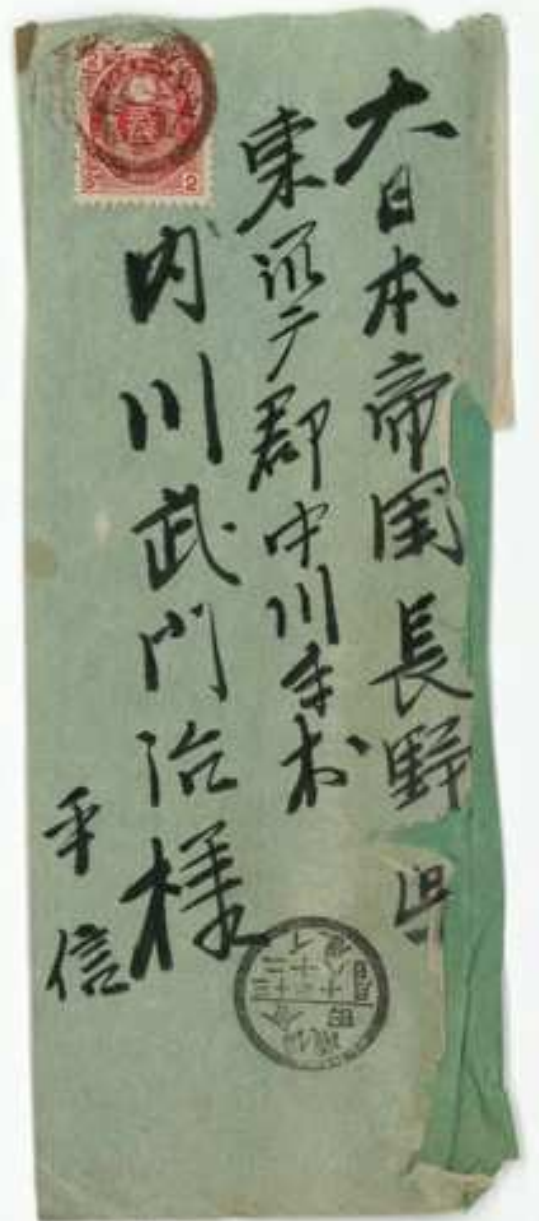 大日本帝国長野県
東筑广郡中川手村
内川武門治様
平信
2